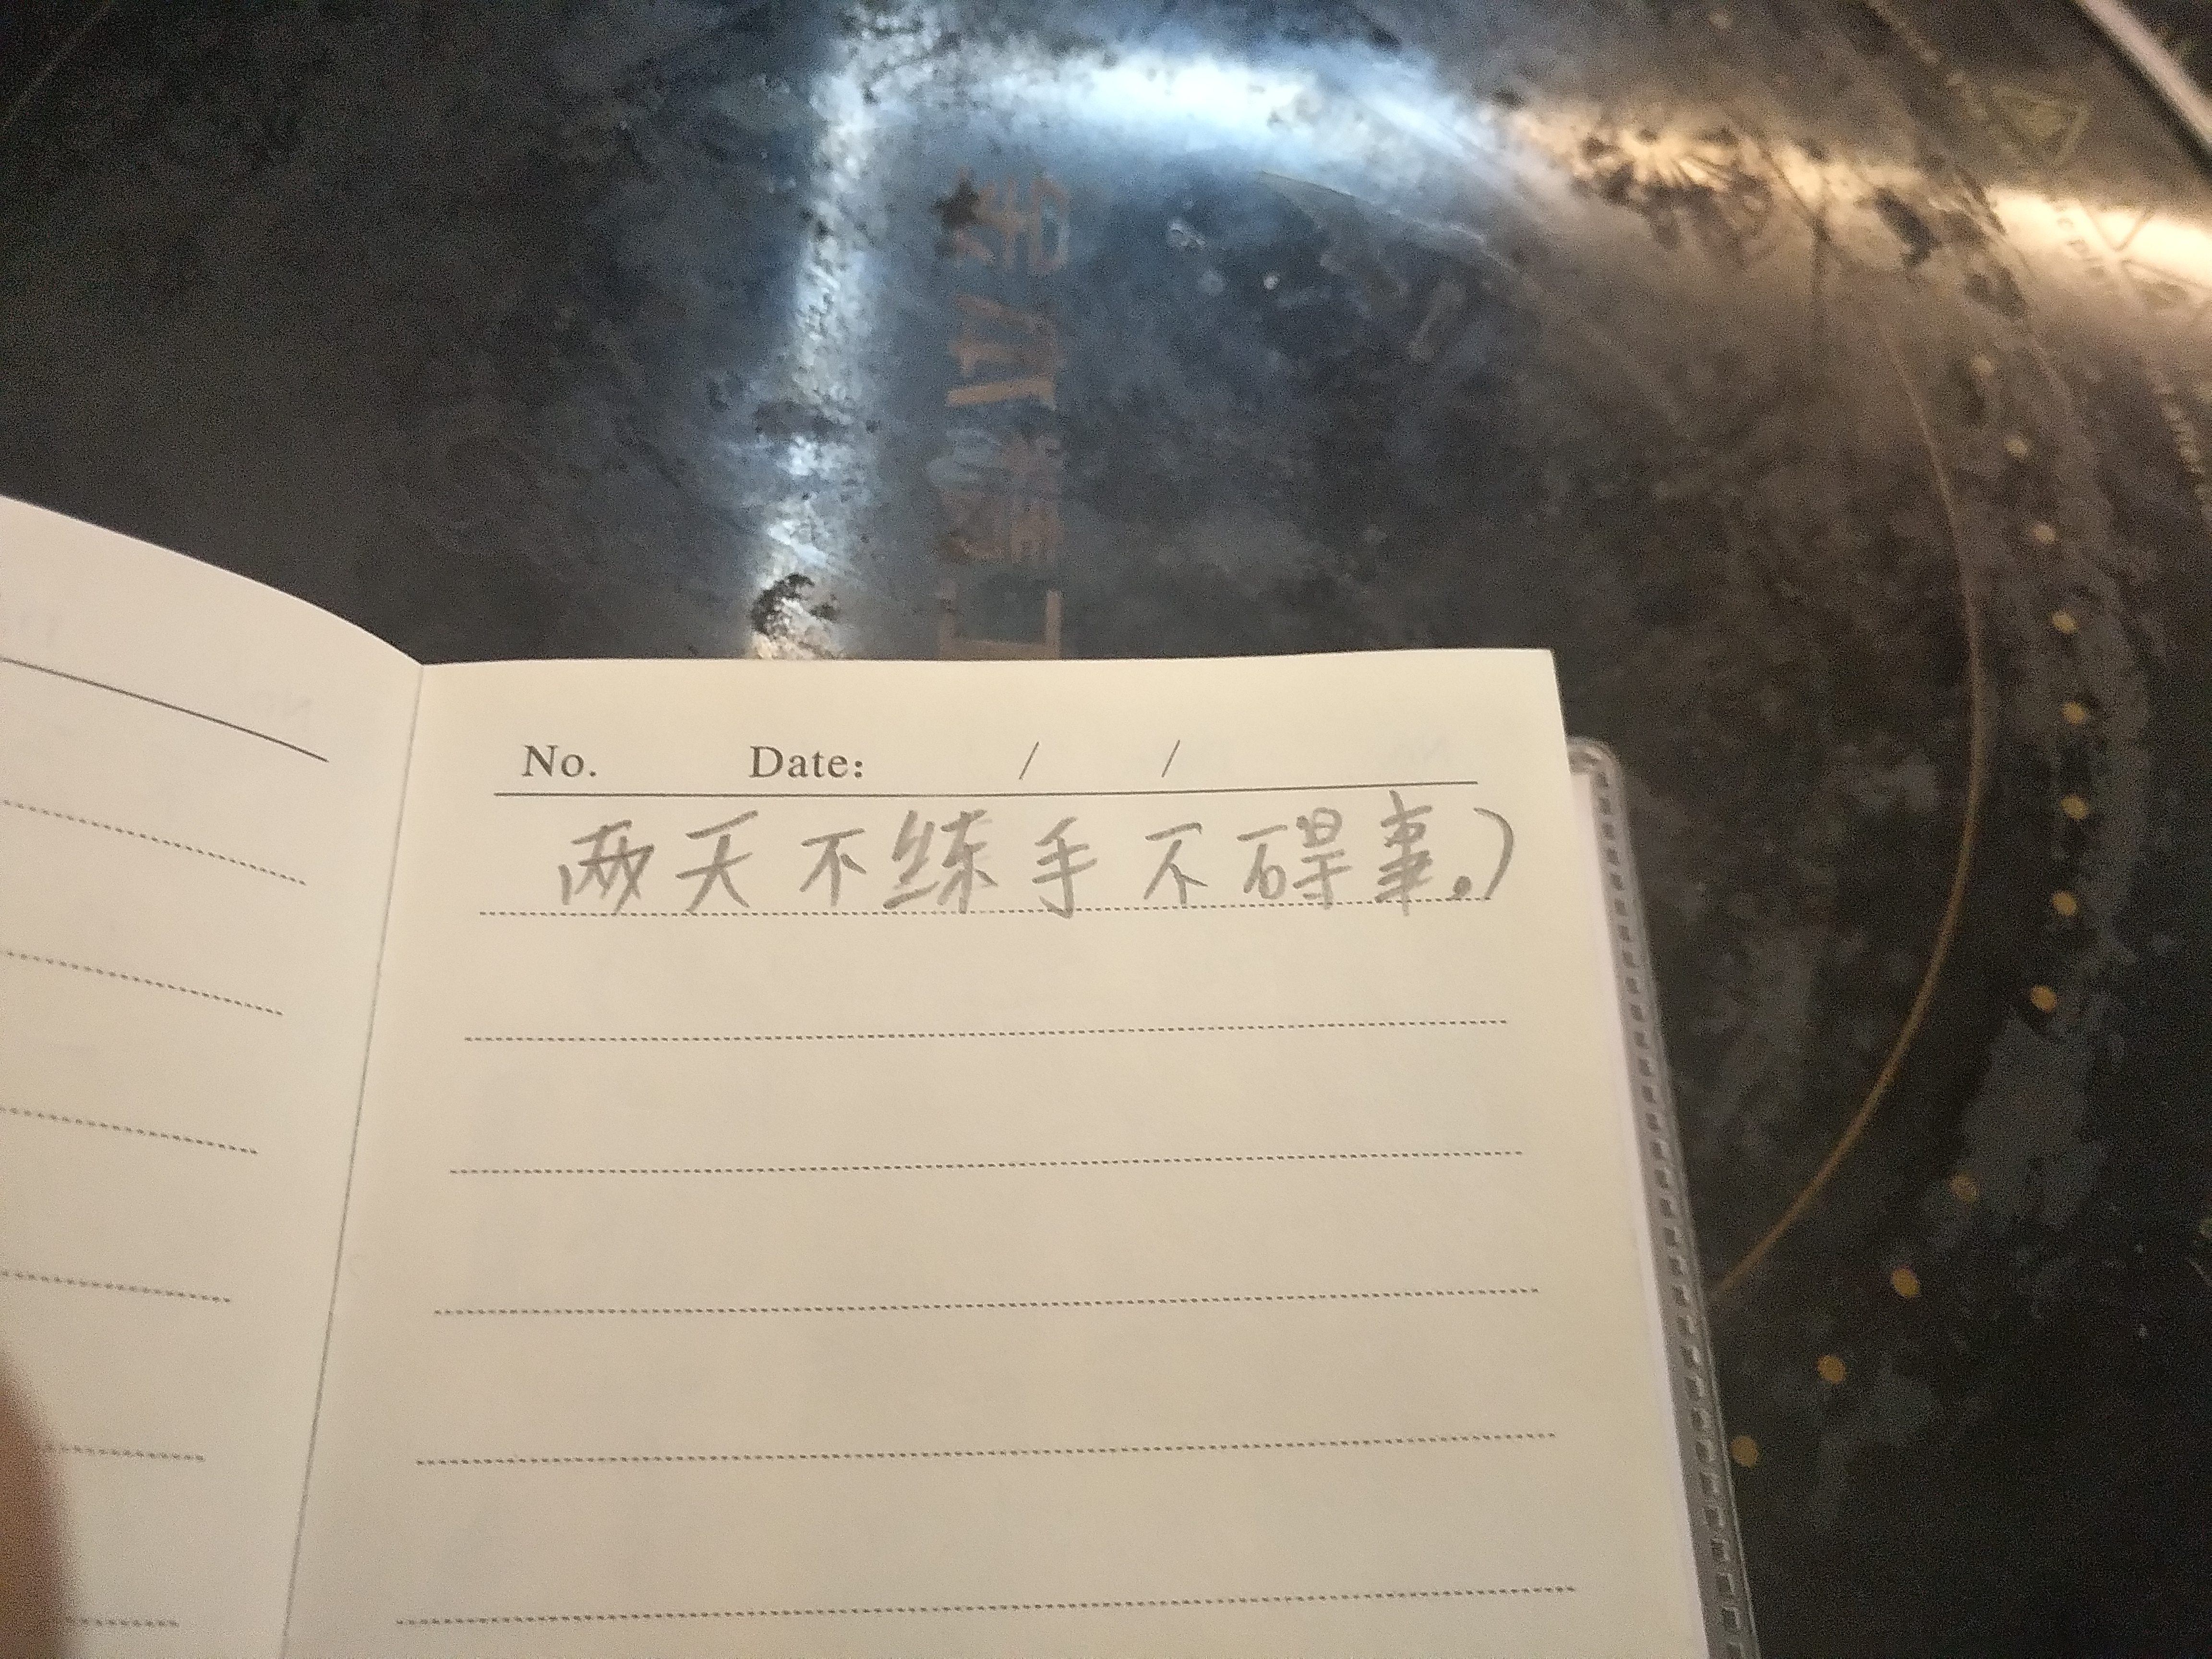 No. Date: / /
两天不练手不碍事。)